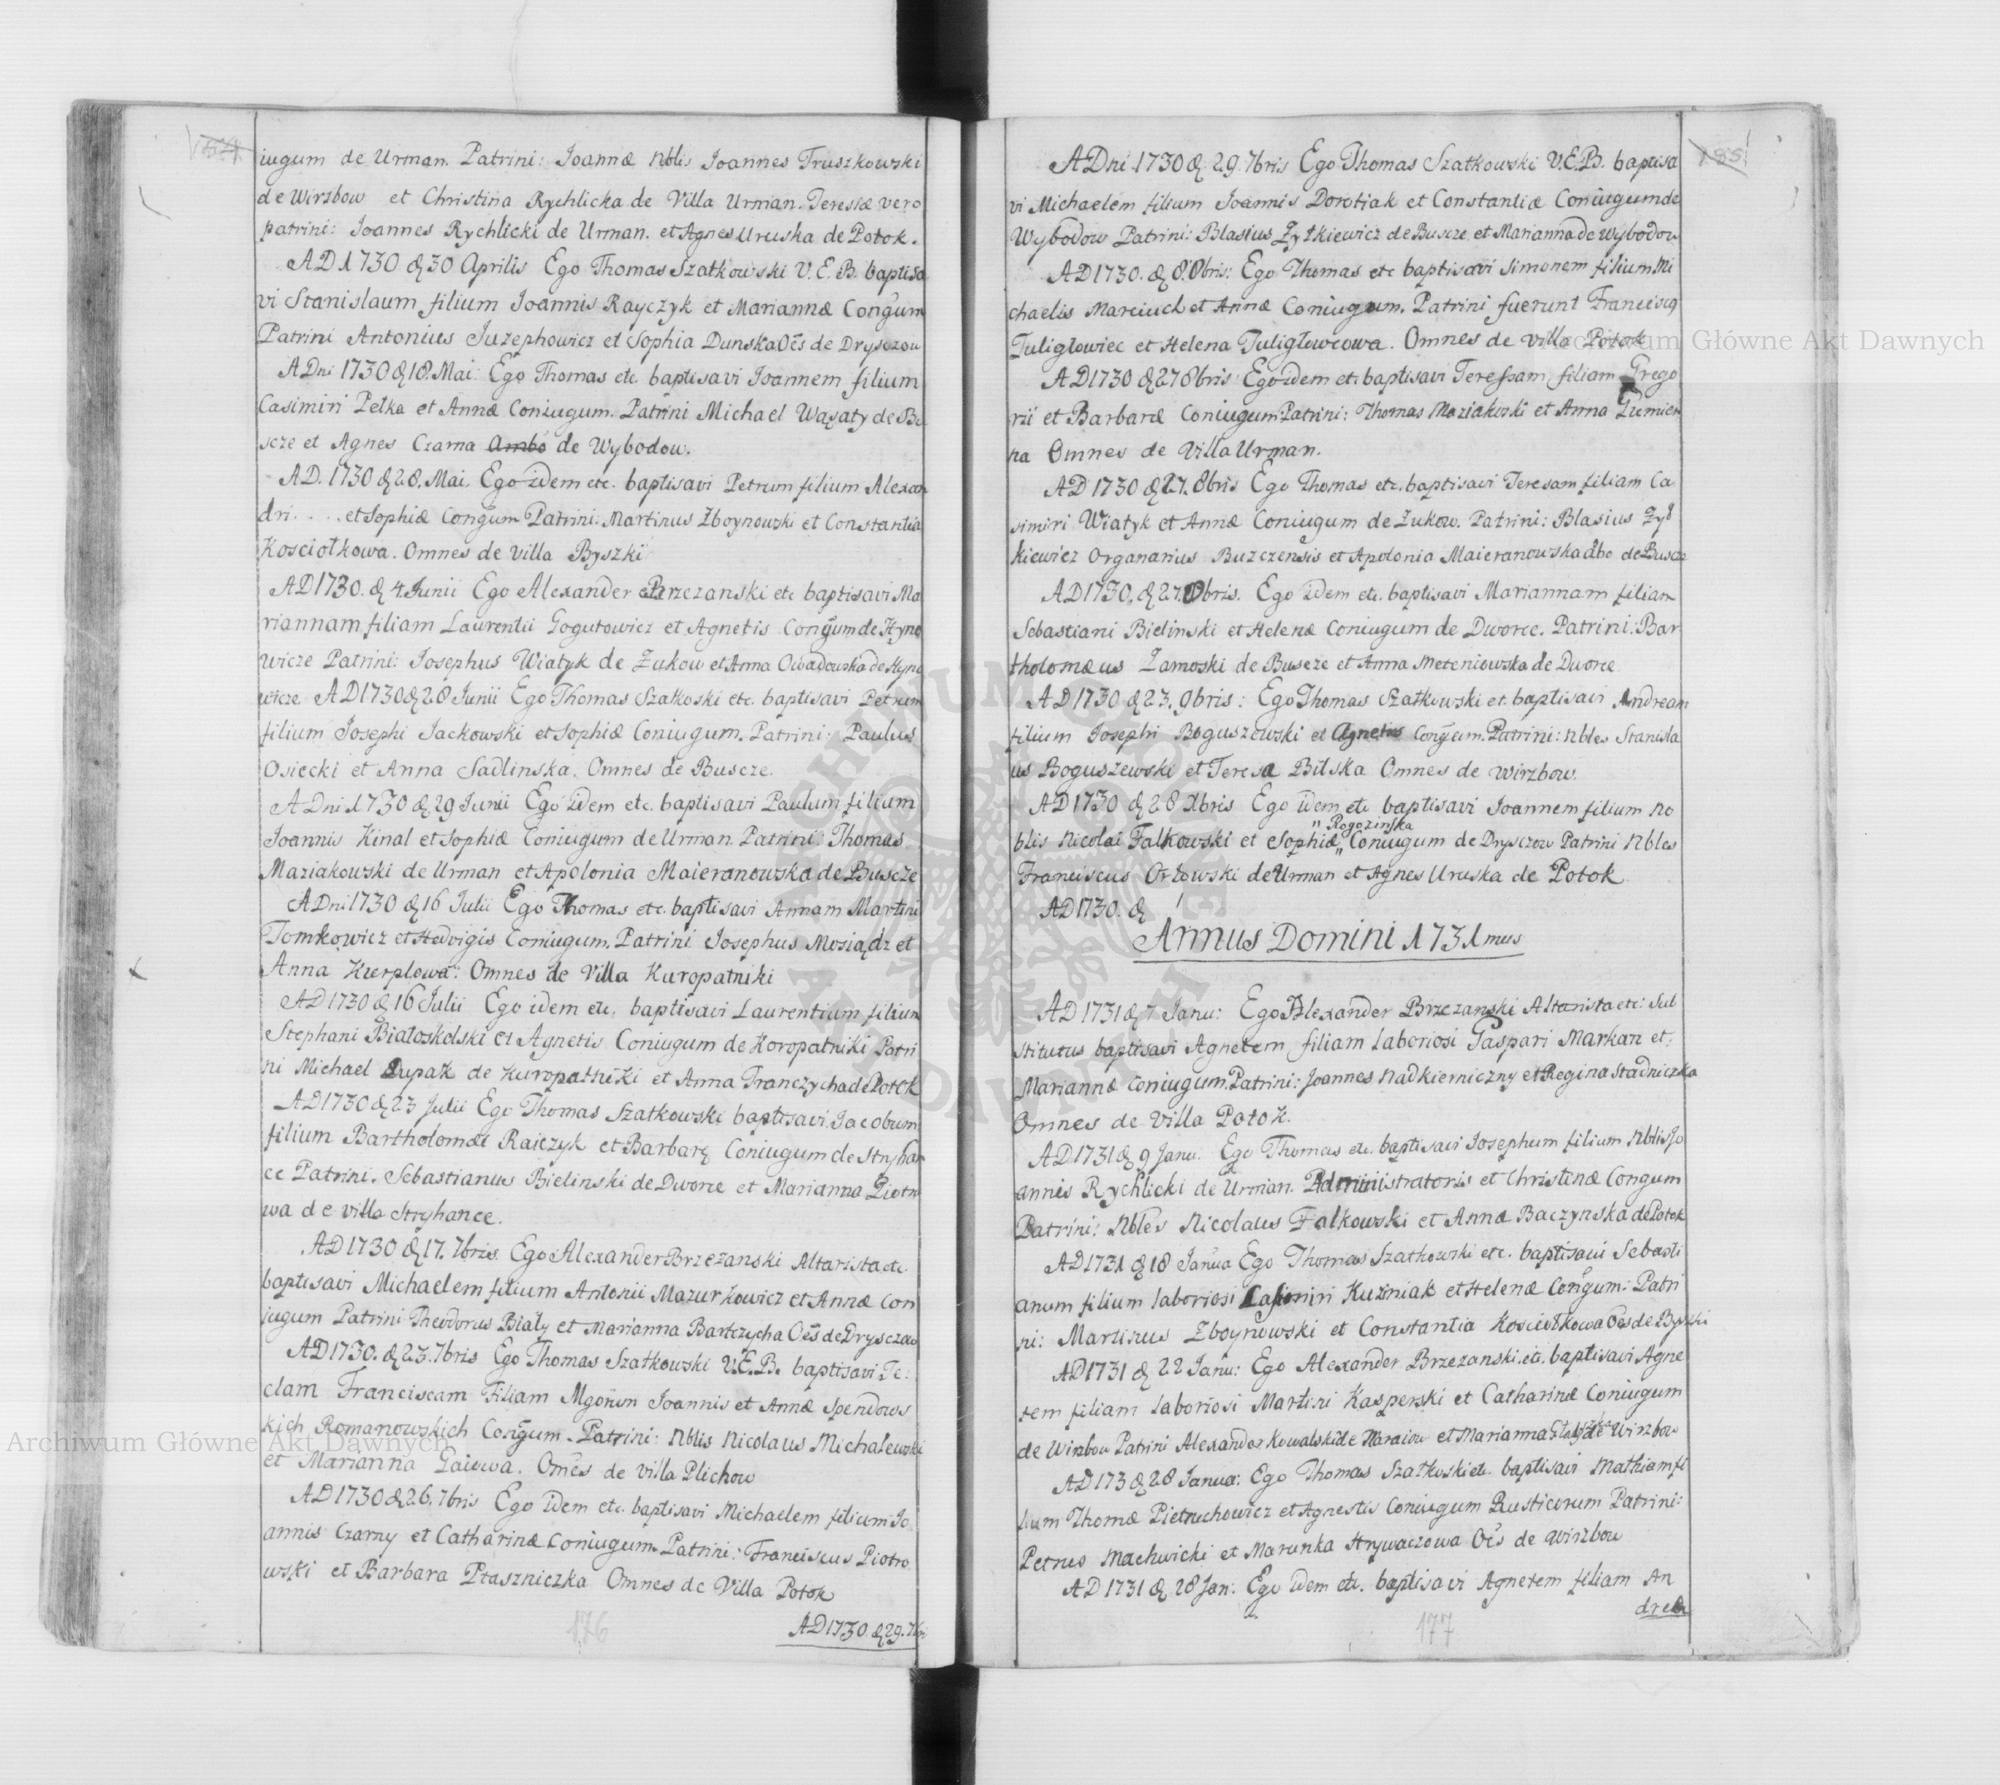 iugum de Urman. Patrini: Joannæ Nblis Joannes Truszkowski
de Wirzbow et Christina Rychlicka de Villa Urman. Teresiæ vero
patrini: Joannes Rychlicki de Urman. et Agnes Uruska de Potok.
AD 1730 & 30 Aprilis Ego Thomas Szatkowski V.E.B. baptisa
vi Stanislaum filium Joannis Rayczyk et Mariannæ Congum
Patrini Antonius Juzephowicz et Sophia Dunska Oes de Drysczow
ADni 1730 & 18. Mai: Ego Thomas etc. baptisavi Joannem filium
Casimiri Petka et Annæ Coniugum. Patrini Michael Wąsaty de Bu
scze et Agnes Czarna Ambo de Wybodow.
AD. 1730 & 28. Mai. Ego idem etc. baptisavi Petrum filium Alexan
dri..... et Sophiæ Congum Patrini: Martinus Zboynowski et Constantia
Kosciołkowa. Omnes de villa Byszki
AD 1730. & 4. Junii Ego Alexander Brzezanski etc baptisavi Ma
riannam filiam Laurentii Gogutowicz et Agnetis Congum de Hyno
wicze Patrini: Josephus Wiatyk de Zukow et Anna Owadowska de Hyno
wicze AD 1730 & 28 Junii Ego Thomas Szatkoski etc. baptisavi Petrum
filium Josephi Jackowski et Sophiæ Coniugum. Patrini: Paulus
Osiecki et Anna Sadlinska. Omnes de Buscze.
ADni 1730 & 29 Junii Ego idem etc. baptisavi Paulum filium
Joannis Kinal et Sophiæ Coniugum de Urman. Patrini: Thomas
Maziakowski de Urman et Apolonia Maieranowska de Buscze
ADni 1730 & 16 Julii Ego Thomas etc. baptisavi Annam Martini
Tomkowicz et Hedvigis Coniugum. Patrini Josephus Mosiądz et
Anna Kierplowa: Omnes de Villa Kuropatniki
AD 1730 & 16 Julii Ego idem etc. baptisavi Laurentium filium
Stephani Białoskolski et Agnetis Coniugum de Koropatniki Patri
ni Michael Łupak de Kuropatniki et Anna Franczycha de Potok
AD 1730 & 23 Julii Ego Thomas Szatkowski baptisavi Jacobum
filium Bartholomæi Raiczyk et Barbaræ Coniugum de Stryhan
ce Patrini. Sebastianus Bielinski de Dworce et Marianna Piotro
wa de villa Stryhance.
AD 1730 & 17. 7bris. Ego Alexander Brzezanski Altarista etc
baptisavi Michaelem filium Antonii Mazurkowicz et Annæ Con
jugum Patrini Theodorus Biały et Marianna Bartczycha Oes de Drysczow
AD 1730. & 23. 7bris Ego Thomas Szatkowski V.E.B. baptisavi Te:
clam Franciscam Filiam Mgorum Joannis et Annæ Spendows
kich Romanowskich Congum. Patrini: Nblis Nicolaus Michalewski
et Marianna Gaiowa. Omes de villa Plichow
AD 1730 & 26. 7bris Ego idem etc. baptisavi Michaelem filium Jo
annis Czarny et Catharinæ Coniugum. Patrini: Franciscus Piotro
wski et Barbara Ptaszniczka Omnes de Villa Potok
176
AD 1730. & 29. 7bri
185
ADni 1730 & 29. 7bris Ego Thomas Szatkowski V.E.B. baptisa
vi Michaelem filium Joannis Dorotiak et Constantiæ Coniugum de
Wybodow Patrini: Blasius Zytkiewicz de Buscze et Marianna de Wybodow
AD 1730. & 8. 8bris: Ego Thomas etc baptisavi Simonem filium Mi
chaelis Marciuch et Annæ Coniugum. Patrini fuerunt Franciscus
Tuligłowiec et Helena Tuligłowcowa. Omnes de villa Potok
AD 1730 & 27 8bris Ego idem etc. baptisavi Teressam filiam Grego
rii et Barbaræ Coniugum Patrini: Thomas Maziakoski et Anna Zumien
na Omnes de Villa Urman.
AD 1730 & 27. 8bris Ego Thomas etc. baptisavi Teresam filiam Ca
simiri Wiatyk et Annæ Coniugum de Zukow. Patrini: Blasius Zyt
kiewicz Organarius Buzczensis et Apolonia Maieranowska Abo de Buscze
AD 1730. & 27. 8bris. Ego idem etc. baptisavi Mariannam filiam
Sebastiani Bielinski et Helenæ Coniugum de Dworce. Patrini: Bar
tholomæus Zamoski de Buscze et Anna Meteniowska de Dworce
AD 1730 & 23. 9bris: Ego Thomas Szatkowski et. baptisavi Andream
filium Josephi Boguszowski et Agnetis Congum. Patrini: Nbles Stanisla
us Boguszewski et Teresa Bilska Omnes de Wirzbow.
AD 1730 & 28 Xbris Ego idem etc baptisavi Joannem filium No
" Rogozinska
blis Nicolai Falkowski et Sophiæ " Coniugum de Drysczow Patrini Nbles
Franciscus Orłowski de Urman et Agnes Uruska de Potok
AD 1730. &
Annus Domini 1731mus
AD 1731 & 7 Janu: Ego Alexander Brzezanski Altarista etc: Sub
stitutus baptisavi Agnetem filiam laboriosi Gaspari Markan et
Mariannæ Coniugum. Patrini: Joannes Nadkierniczny et Regina Stadniczka
Omnes de villa Potok.
AD 1731 & 9 Janu: Ego Thomas etc. baptisavi Josephum filium Nblis Jo
annis Rychlicki de Urman. Administratoris et Christinæ Congum
Patrini: Nbles Nicolaus Falkowski et Anna Baczynska de Potok
AD 1731 & 18 Janua Ego Thomas Szatkowski etc. baptisavi Sebasti
anum filium laboriosi Casimiri Kuzniak et Helenæ Congum. Patri
ni: Martinus Zboynowski et Constantia Kosciołkowa Oes de Byszki
AD 1731 & 22 Janu: Ego Alexander Brzezanski. etc. baptisavi Agne
tem filiam laboriosi Martini Kasperski et Catharinæ Coniugum
de Wirzbow Patrini Alexander Kowalski de Naraiow et Marianna de Wirzbow
AD 173 & 28 Janua: Ego Thomas Szatkoski etc. baptisavi Mathiam fi
lium Thomæ Pietruchowicz et Agnestis Coniugum Rusticorum Patrini:
Petrus Machwicki et Marunka Hrywaczowa Oes de Wirzbow
AD 1731 & 28 Jan: Ego idem etc. baptisavi Agnetem filiam An
dreæ
177
Archiwum Główne Akt Dawnych
Archiwum Główne Akt Dawnych